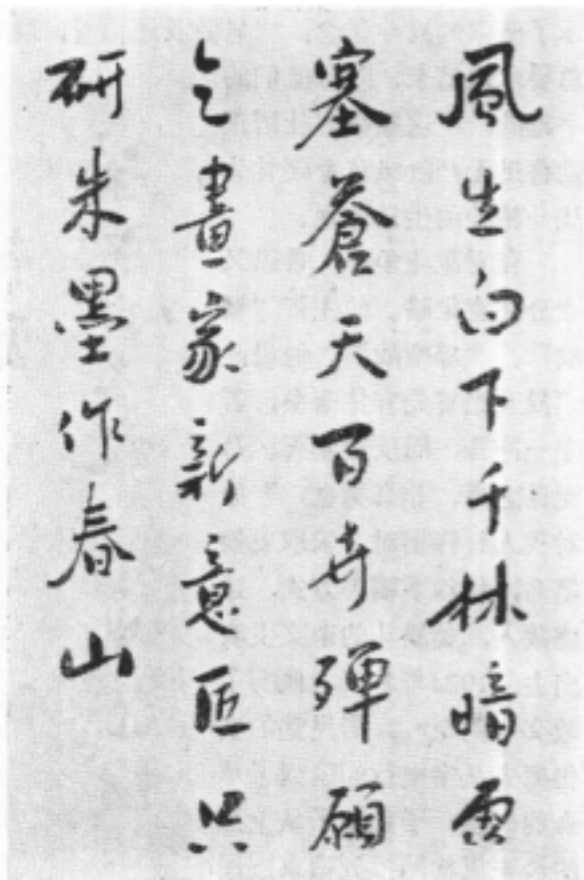 風生白下千林暗霧
塞蒼天百卉殫願
乞畫家新意匠只
研朱墨作春山